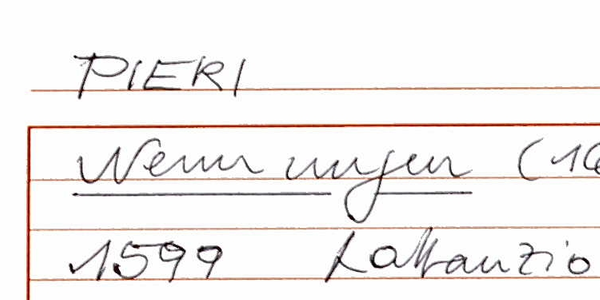 PIERI
Nennungen (16
1599 Lattanzio